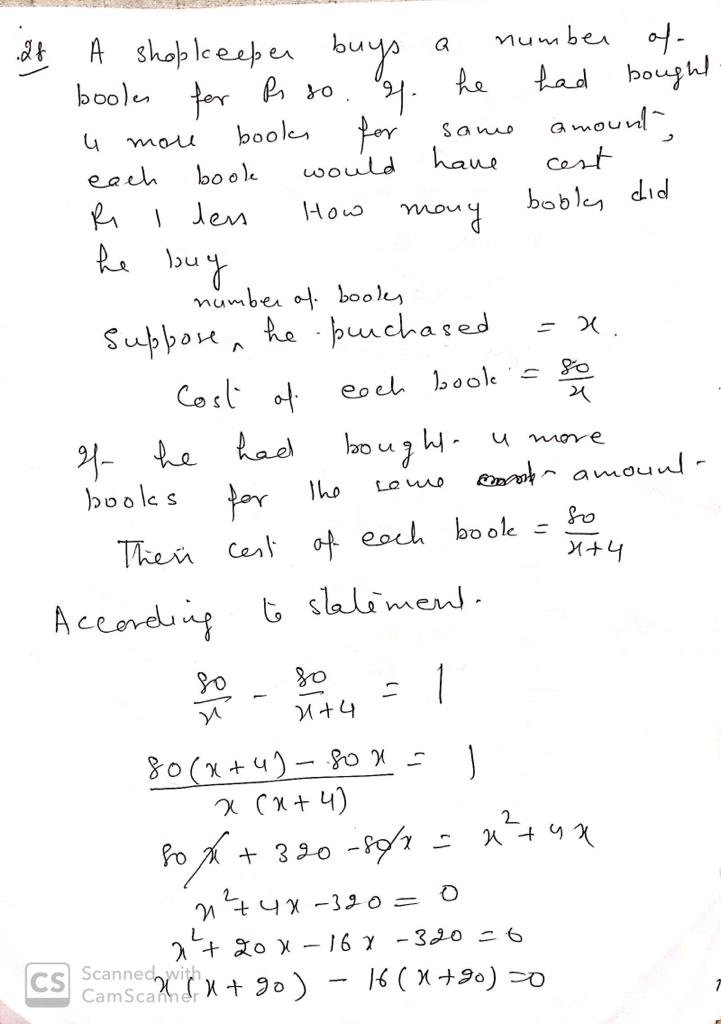 .28 A shopkeeper buys a number of
books for Rs 80. If he had bought
4 more books for same amount,
each book would have cost
Rs 1 less How many books did
he buy
number of books
Suppose ^ he purchased = x.
Cost of each book = 80/x
If he had bought 4 more
books for the same amount
Then cost of each book = 80/x+4
According to statement.
80/x - 80/x+4 = 1
80(x+4) - 80x / x(x+4) = 1
80x + 320 - 80x = x² + 4x
x² + 4x - 320 = 0
x² + 20x - 16x - 320 = 0
x(x+20) - 16(x+20) = 0
CS Scanned with
CamScanner